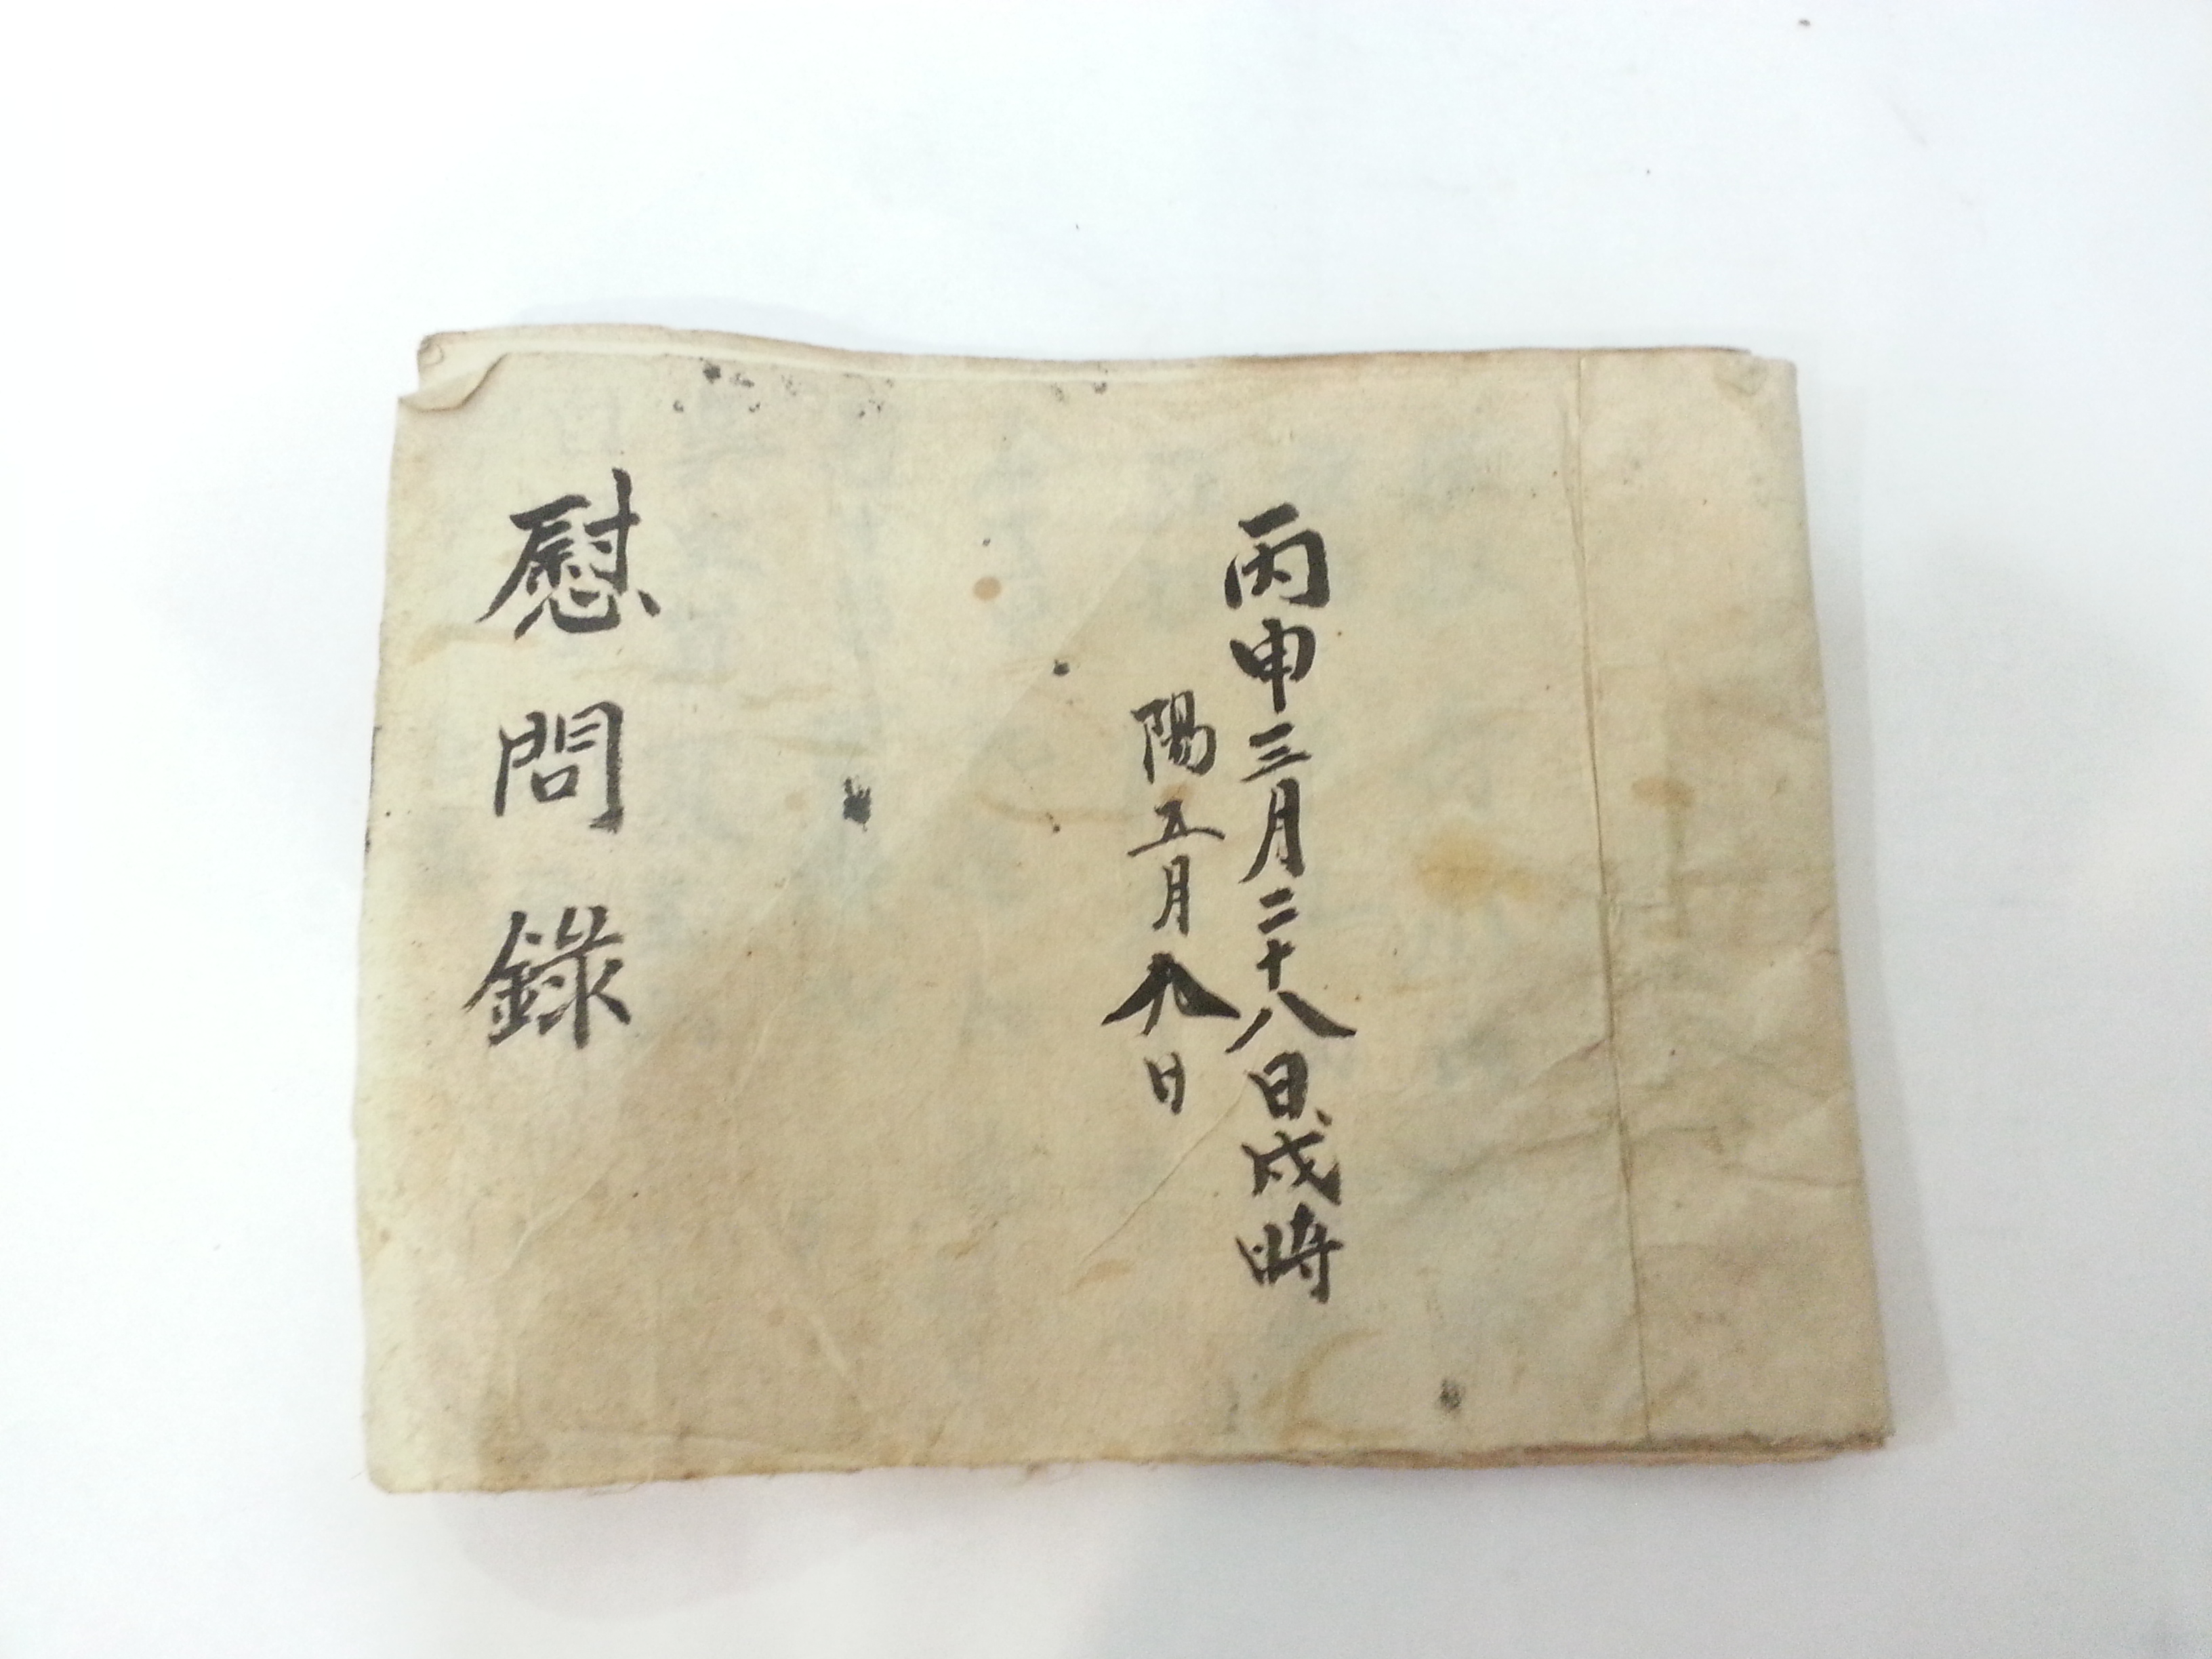 丙申三月二十八日戌時
陽五月八日
慰問錄